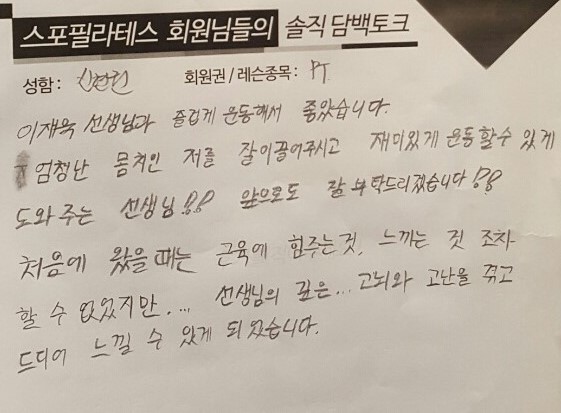 스포필라테스 회원님들의 솔직 담백토크
성함 : 회원권 / 레슨종목 : PT
이재욱 선생님과 즐겁게 운동해서 좋았습니다.
엄청난 몸치인 저를 잘 이끌어주시고 재미있게 운동할 수 있게
도와주는 선생님!! 앞으로도 잘 부탁드리겠습니다!!
처음에 왔을 때는 근육에 힘주는 것, 느끼는 것 조차
할 수 없었지만.... 선생님의 깊은... 고뇌와 고난을 겪고
드디어 느낄 수 있게 되었습니다.